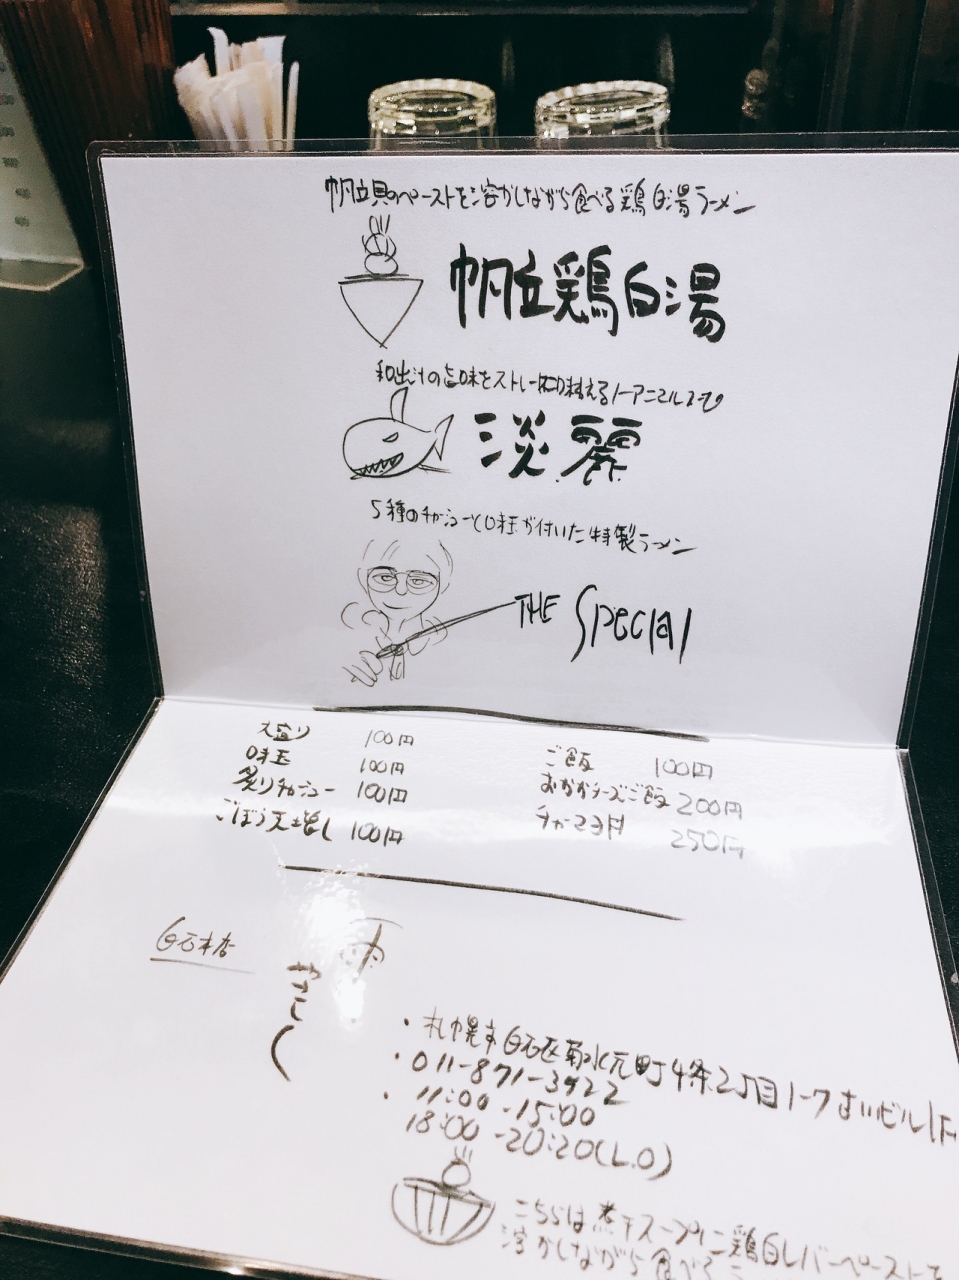 帆立貝のペーストを溶かしながら食べる鶏白湯ラーメン
帆立鶏白湯
和出汁の旨味をストレートに味わえるノーアニマル
淡麗
5種のチャーシューと味玉が付いた特製ラーメン
THE Special
大盛り 100円
味玉 100円
炙りチャーシュー 100円
ごぼう天増し 100円
ご飯 100円
おかかチーズご飯 200円
チャーマヨ丼 250円
白石本店
雨
やさしく
・札幌市白石区菊水元町4条2丁目1-7 ビル1F
・011-871-3922
・11:00-15:00
18:00-20:20(L.O)
こちらは煮干スープに鶏白レバーペーストを
溶かしながら食べる